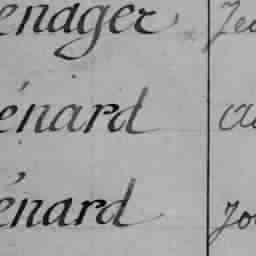 enager Je
énard
énard Jo